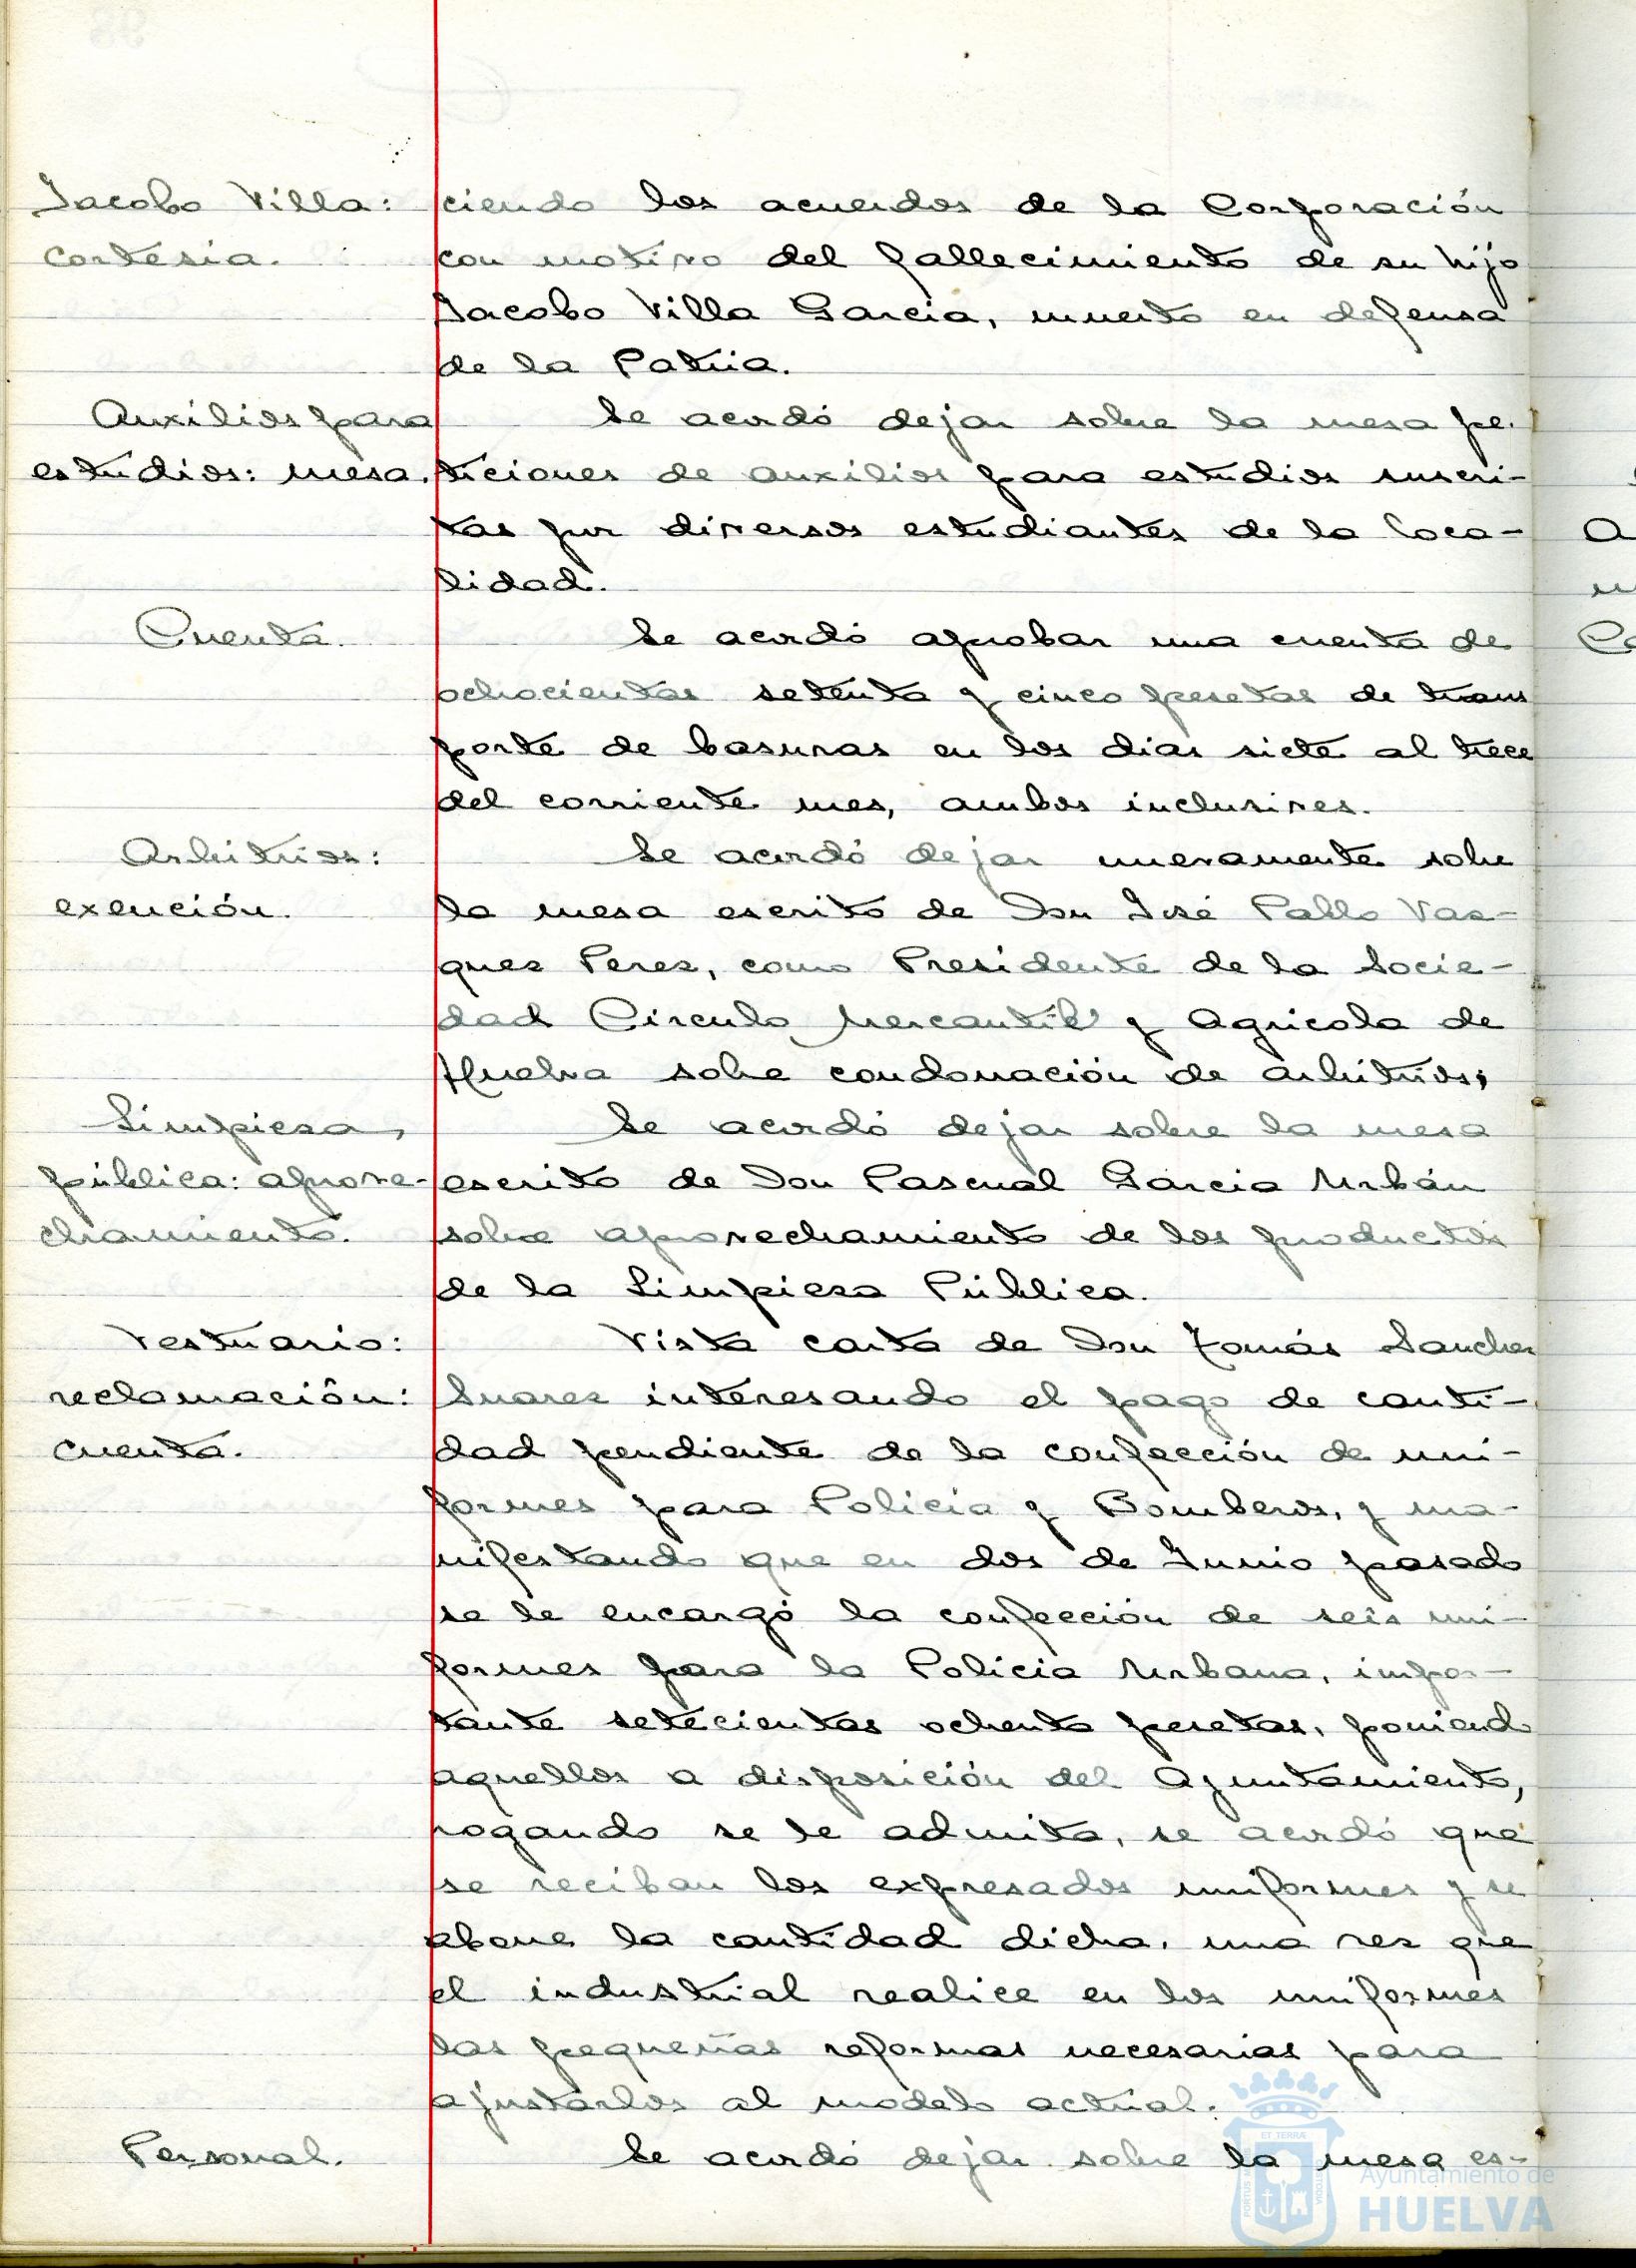 Jacobo Villa: ciendo los acuerdos de la Corporación
cortesia. con motivo del fallecimiento de su hijo
Jacobo Villa Garcia, muerto en defensa
de la Patria.
Auxilios para Se acordó dejar sobre la mesa pe-
estudios: mesa. ticiones de auxilios para estudios suscri-
tas por diversos estudiantes de la loca-
lidad.
Cuenta. Se acordó aprobar una cuenta de
ochocientas setenta y cinco pesetas de trans
porte de basuras en los dias siete al trece
del corriente mes, ambos inclusives.
Arbitrios: Se acordó dejar nuevamente sobre
exención. la mesa escrito de Don José Pablo Vaz-
quez Perez, como Presidente de la Socie-
dad Circulo Mercantil y Agricola de
Huelva sobre condonación de arbitrios;
Limpieza Se acordó dejar sobre la mesa
pública: aprove- escrito de Don Pascual Garcia Urbán
chamiento. sobre aprovechamiento de los productos
de la Limpieza Pública.
Vestuario: Vista carta de Don Tomás Sanchez
reclamación: Suarez interesando el pago de canti-
cuenta. dad pendiente de la confección de uni-
formes para Policia y Bomberos, y ma-
nifestando que en dos de Junio pasado
se le encargó la confección de seis uni-
formes para la Policia Urbana, impor-
tante setecientas ochenta pesetas, poniendo
aquellos a disposición del Ayuntamiento,
rogando se le admita, se acordó que
se reciban los expresados uniformes y se
abone la cantidad dicha, una vez que
el industrial realice en los uniformes
las pequeñas reformas necesarias para
ajustarlos al modelo actual.
Personal. Se acordó dejar sobre la mesa es-
Ayuntamiento de
HUELVA